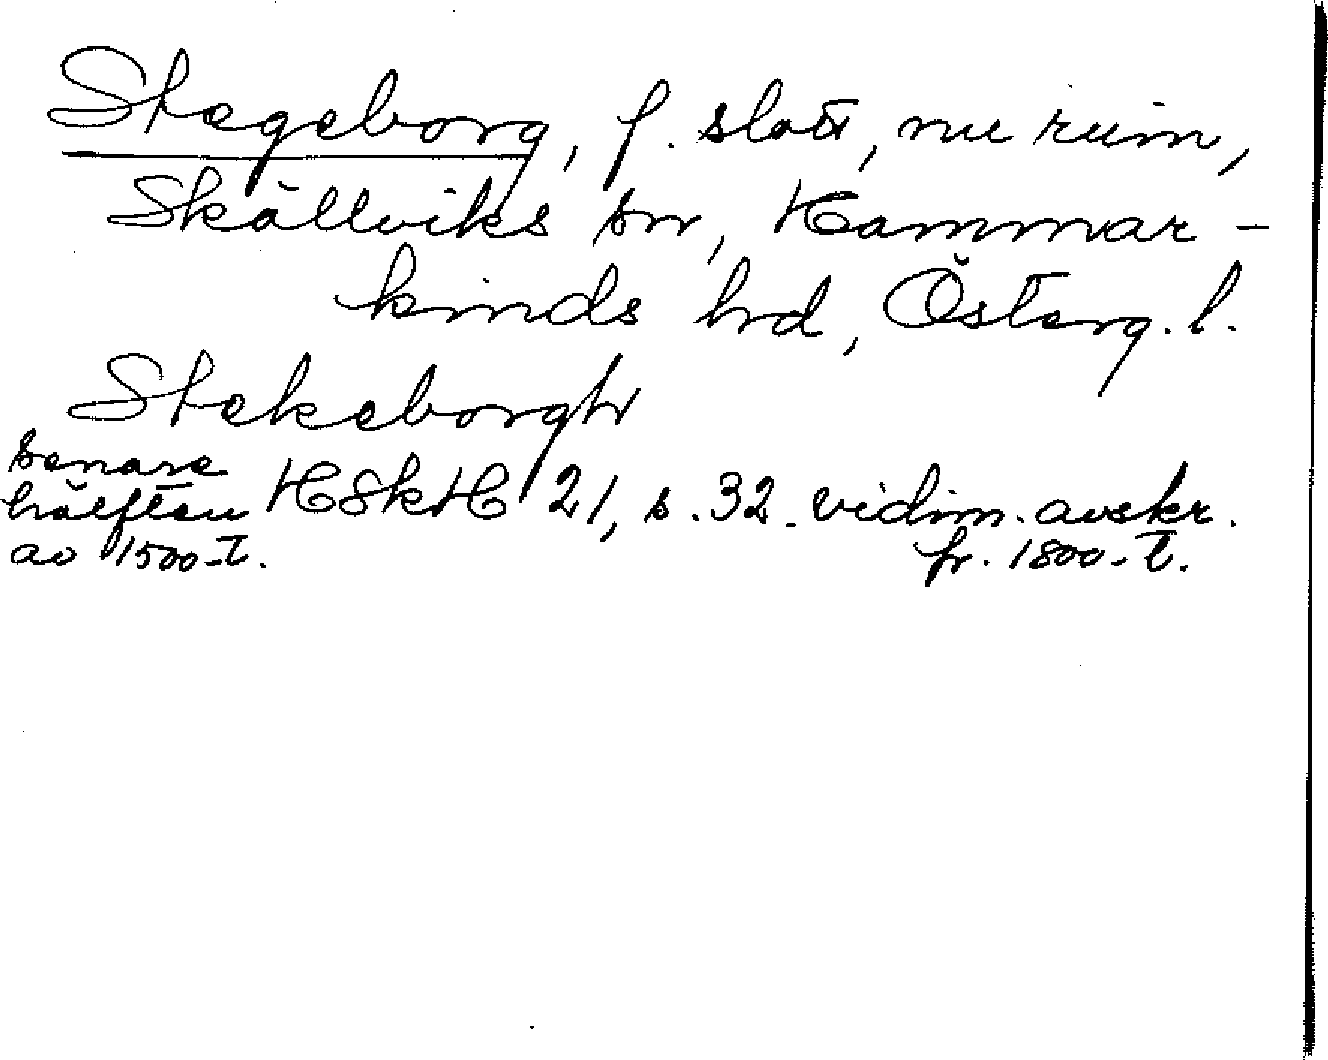 Stegeborg, f. slott, nu ruin,
Skällviks sn, Hammar-
kinds hrd, Österg. l.
Stekeborgh
senare
hälften HSkH 21, s. 32. vidim. avskr.
av 1500-t. fr. 1800-t.